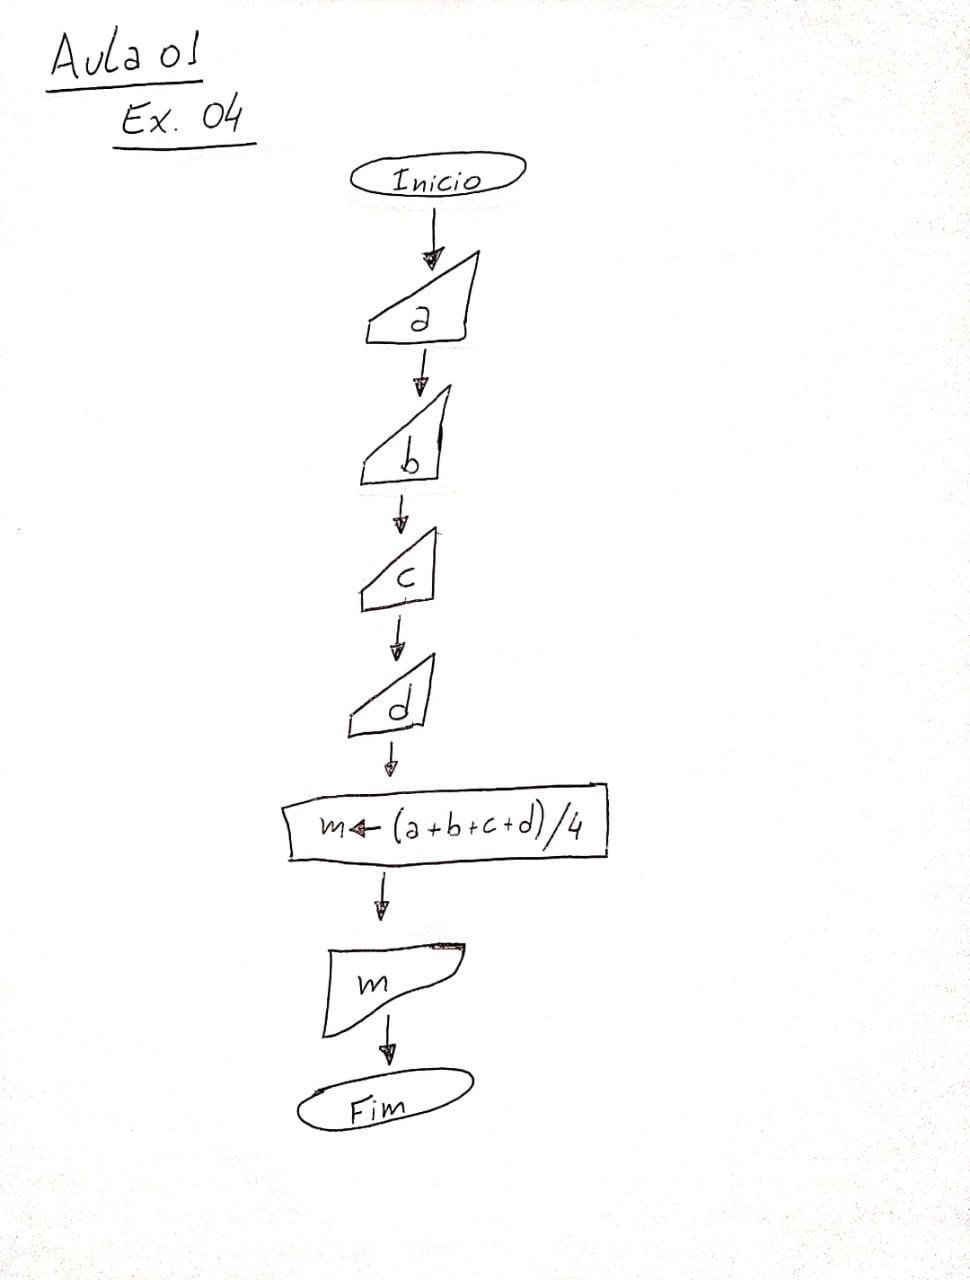 Aula 01
Ex. 04
Inicio
a
b
c
d
m ← (a+b+c+d)/4
m
Fim